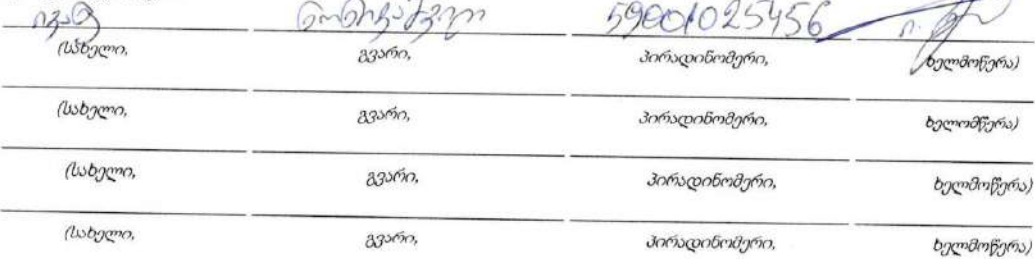 59001025456
(სახელი, გვარი, პირადინომერი, ხელმოწერა)
(სახელი, გვარი, პირადინომერი, ხელომწერა)
(სახელი, გვარი, პირადინომერი, ხელმოწერა)
(სახელი, გვარი, პირადინომერი, ხელმოწერა)